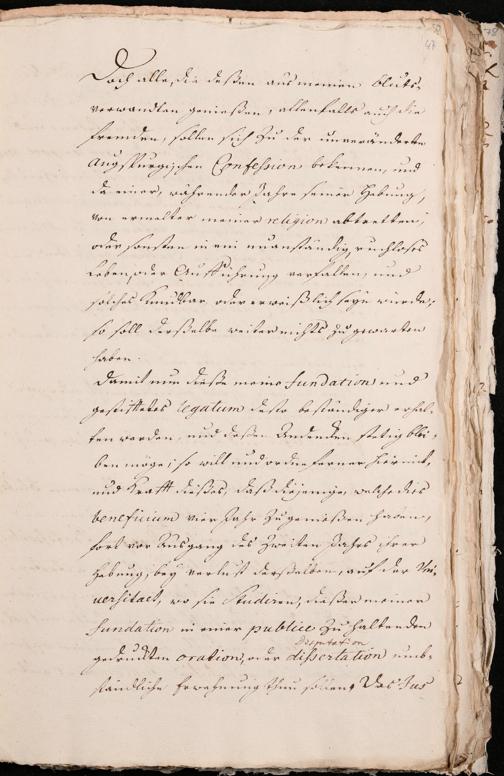 47
Doch alle, die deßen aus meinen bluts-
verwandten genießen, allenfalls auch die
fremden, sollen sich zu der unveränderten
Augspurgischen Confession bekennen, und
da einer, währender Jahre seiner Hebung,
von ermelter meiner religion abtretten,
oder sonsten in ein unanständig ruchloses
Leben, oder Aufführung verfallen, und
solches kundbar oder erweißlich seyn würde,
so soll derselbe weiter nichts zu gewarten
haben.
Damit nun dieße meine fundation und
gestifftetes legatum desto beständiger erhal-
ten werden, und deßen Andencken stetig blei-
ben möge; so will und ordne ferner hiermit,
und Krafft dieses, daß diejenige, welche dis
beneficium vier Jahr zu genießen haben,
fort vor Ausgang des Zweiten Jahrs ihrer
Hebung, bey verlust derselben, auf der Uni-
versitaet, wo sie studiren, dießer meiner
fundation in einer publice zu haltenden
Disputation
gedruckten oration, oder dissertation umb-
ständliche Erwehnung thun sollen. Das Jus